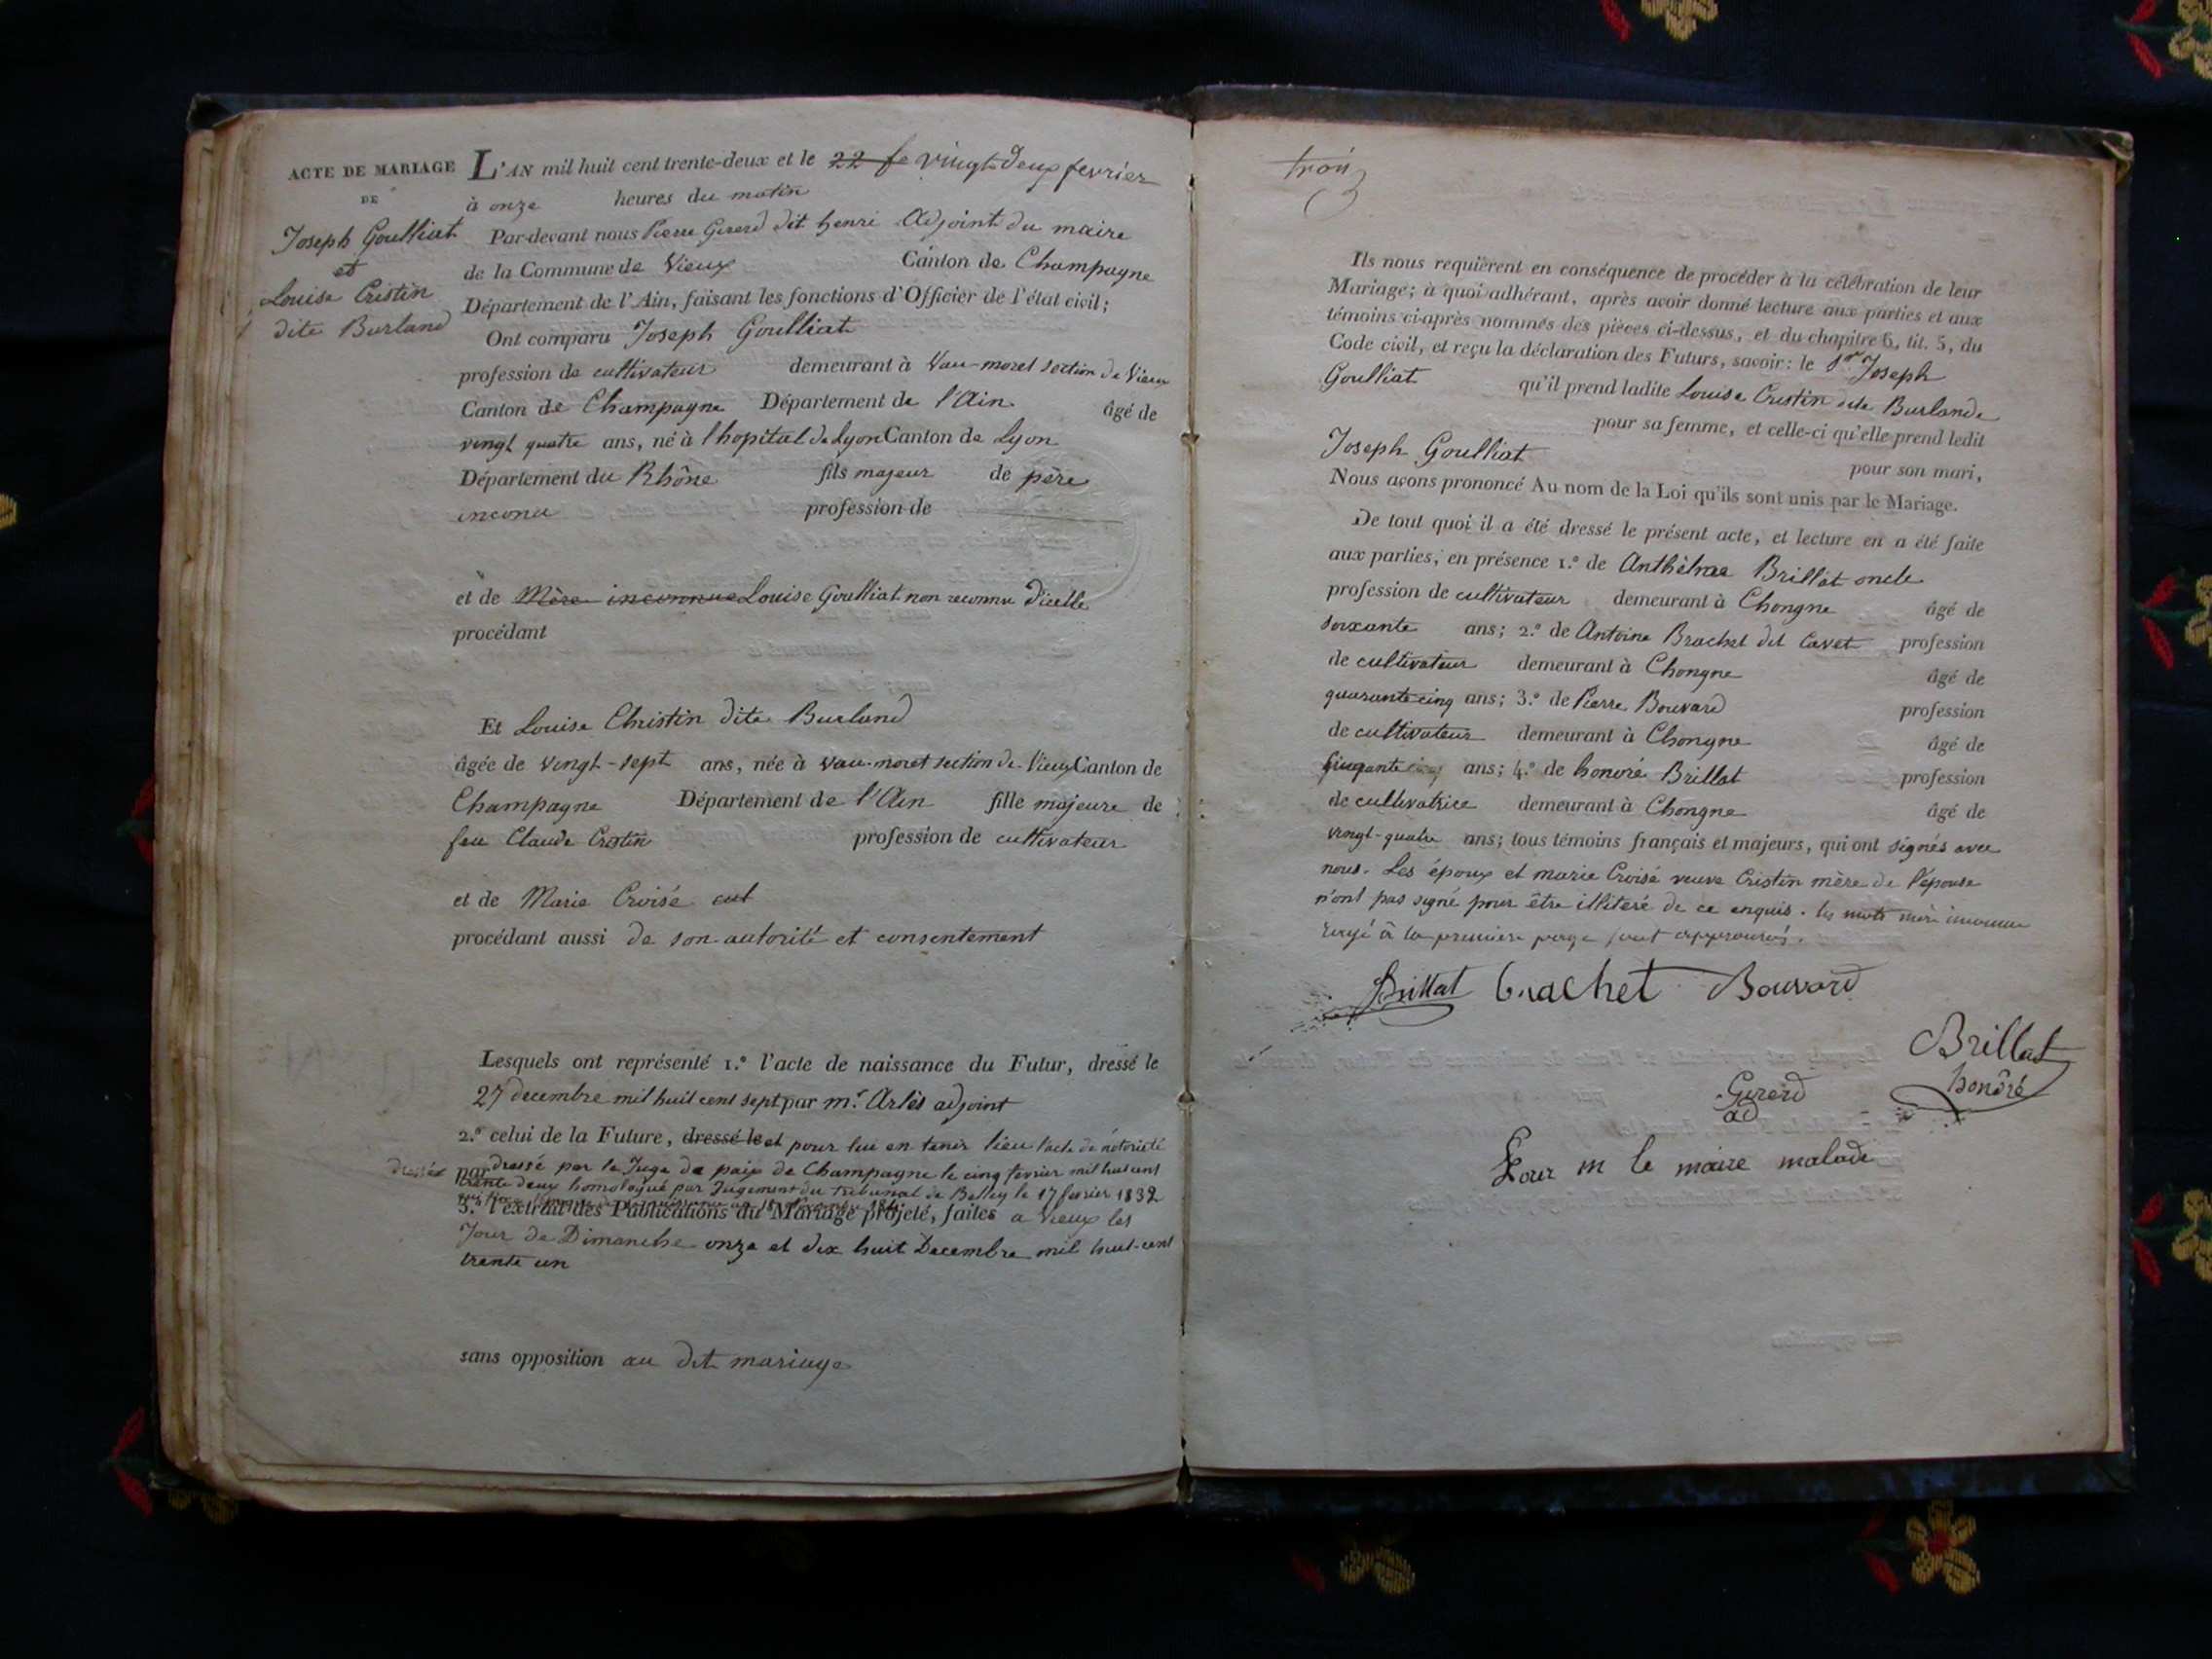 ACTE DE MARIAGE
DE
Joseph Goulliat
et
Louise Cristin
dite Burland
L'AN mil huit cent trente-deux et le 22 fe vingt deux fevrier
à onze heures du matin
Par-devant nous Pierre Gererd dit henri Adjoint du maire
de la Commune de Vieux Canton de Champagne
Département de l'Ain, faisant les fonctions d'Officier de l'état civil;
Ont comparu Joseph Goulliat
profession de cultivateur demeurant à Vau-moret section de Vieux
Canton de Champagne Département de l'Ain âgé de
vingt quatre ans, né à l'hopital de Lyon Canton de Lyon
Département du Rhône fils majeur de père
inconu profession de
et de Mère inconnue Louise Goulliat non reconnu d'icelle
procédant
Et Louise Christin dite Burland
âgée de vingt-sept ans, née à vau-moret section de Vieux Canton de
Champagne Département de l'Ain fille majeure de
feu Claude Cristin profession de cultivateur
et de Marie Croisé
procédant aussi de son autorité et consentement
Lesquels ont représenté 1.° l'acte de naissance du Futur, dressé le
27 decembre mil huit cent sept par mr. Arlès adjoint
2.° celui de la Future, dressé le et pour lui en tenir lieu l'acte de notoriété
par dressé par le Juge de paix de Champagne le cinq fevrier mil huit cent
trente deux homologué par Jugement du tribunal de Belley le 17 fevrier 1832
3.° l'extrait des Publications du Mariage projeté, faites a Vieux les
Jour de Dimanche onze et dix huit Decembre mil huit-cent
trente un
sans opposition au dit mariage
trois
Ils nous requièrent en conséquence de procéder à la célébration de leur
Mariage; à quoi adhérant, après avoir donné lecture aux parties et aux
témoins ci-après nommés des pièces ci-dessus, et du chapitre 6, tit. 5, du
Code civil, et reçu la déclaration des Futurs, savoir: le Sr Joseph
Goulliat qu'il prend ladite Louise Cristin dite Burlande
pour sa femme, et celle-ci qu'elle prend ledit
Joseph Goulliat pour son mari,
Nous avons prononcé Au nom de la Loi qu'ils sont unis par le Mariage.
De tout quoi il a été dressé le présent acte, et lecture en a été faite
aux parties, en présence 1.° de Anthèlme Brillat oncle
profession de cultivateur demeurant à Chongne âgé de
soixante ans; 2.° de Antoine Brachet dit Cavet profession
de cultivateur demeurant à Chongne âgé de
quarante cinq ans; 3.° de Pierre Bouvard profession
de cultivateur demeurant à Chongne âgé de
ans; 4.° de honoré Brillat profession
de cultivatrice demeurant à Chongne âgé de
vingt-quatre ans; tous témoins français et majeurs, qui ont signés avec
nous. Les époux et marie Croisé veuve Cristin mère de l'épouse
n'ont pas signé pour être illiteré de ce enquis. les mots mère inconnue
rayé à la premiere page sont approuvés.
Brillat brachet Bouvard
Brillat
honoré
Gererd
ad
Pour m le maire malade